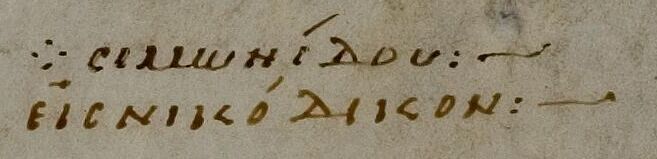 ⁘ σιμωνίδου: ~
εἰς νικόδικον: ~